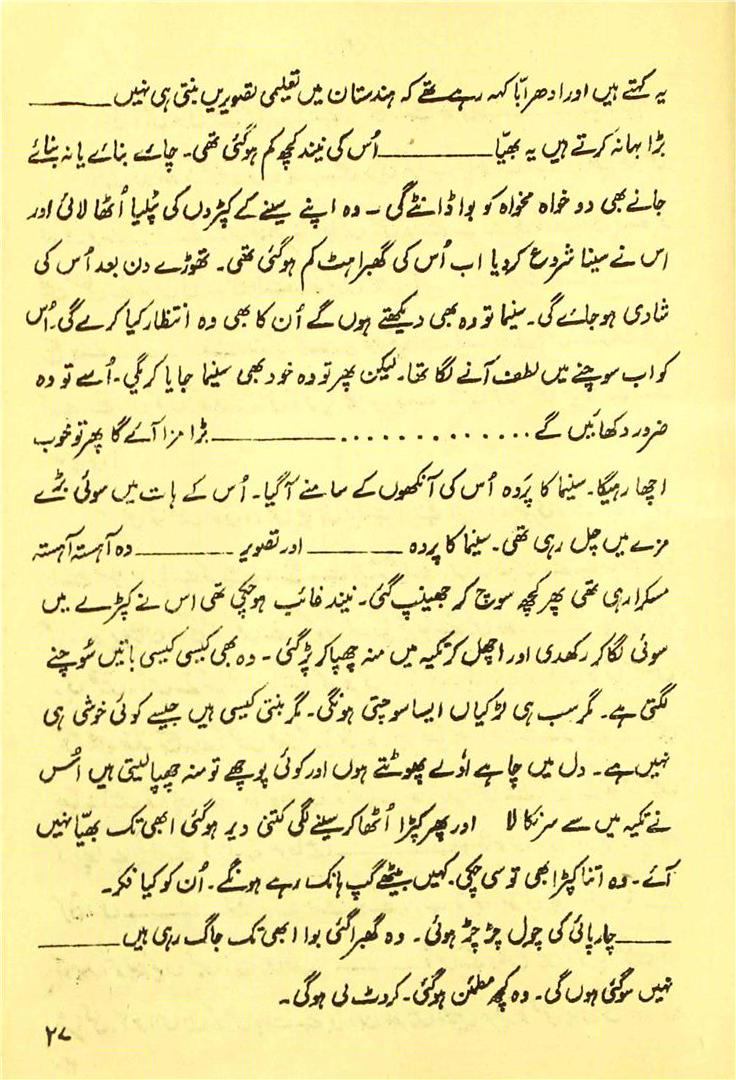 یہ کہتے ہیں اور ادھر ابّا کہہ رہے تھے کہ ہندستان میں تعلیمی تصویریں بنتی ہی نہیں ______
بڑا بہانہ کرتے ہیں یہ بھیّا ________ اُس کی نیند کچھ کم ہو گئی تھی۔ چائے بنائے یا نہ بنائے
جانے بھی دو خواہ مخواہ کو بوا ڈانٹے گی ۔ وہ اپنے سینے کے کپڑوں کی پُلیا اُٹھا لائی اور
اس نے سینا شروع کر دیا اب اُس کی گھبراہٹ کم ہو گئی تھی۔ تھوڑے دن بعد اُس کی
شادی ہو جائے گی۔ سینما تو وہ بھی دیکھتے ہوں گے اُن کا بھی وہ انتظار کیا کرے گی۔ اُس
کو اب سوچنے میں لطف آنے لگا تھا۔ لیکن پھر تو وہ خود بھی سینما جایا کریگی۔ اُسے تو وہ
ضرور دکھائیں گے ............. ________ بڑا مزا آئے گا پھر تو خوب
اچھا رہیگا۔ سینما کا پَردہ اُس کی آنکھوں کے سامنے آگیا۔ اُس کے ہات میں سوئی بڑے
مزے میں چل رہی تھی۔ سینما کا پردہ ______ اور تصویر ______ وہ آہستہ آہستہ
مسکرا رہی تھی پھر کچھ سوچ کر جھینپ گئی۔ نیند غائب ہو چکی تھی اس نے کپڑے میں
سوئی لگا کر رکھدی اور اچھل کر تکیہ میں منہ چھپا کر پڑ گئی ۔ وہ بھی کیسی کیسی باتیں سُوچنے
لگتی ہے۔ مگر سب ہی لڑکیاں ایسا سوچتی ہونگی۔ مگر بنتی کیسی ہیں جیسے کوئی خوشی ہی
نہیں ہے۔ دل میں چاہے لڈو پھوٹتے ہوں اور کوئی پوچھے تو منہ چھپا لیتی ہیں اُس
نے تکیہ میں سے سر نکالا اور پھر کپڑا اُٹھا کر سینے لگی کتنی دیر ہو گئی ابھی تک بھیّا نہیں
آئے۔ وہ اتنا کپڑا بھی تو سی چکی۔ کہیں بیٹھے گپ ہانک رہے ہونگے۔ اُن کو کیا فکر۔
____ چارپائی کی چول چڑ چڑ ہوئی۔ وہ گھبرا گئی بوا ابھی تک جاگ رہی ہیں ______
نہیں سو گئی ہوں گی۔ وہ کچھ مطمئن ہو گئی۔ کروٹ لی ہو گی۔
۲۷